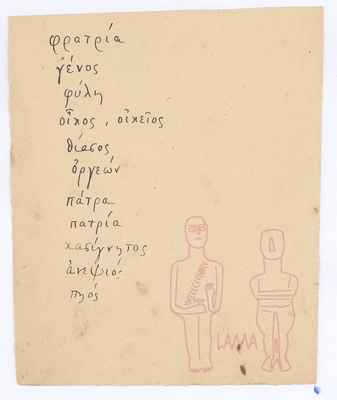 φρατρία
γένος
φύλη
οἶκος, οἰκεῖος
θίασος
ὀργεών
πάτρα
πατρία
κασίγνητος
ἀνεψιός
πηός
LAMA